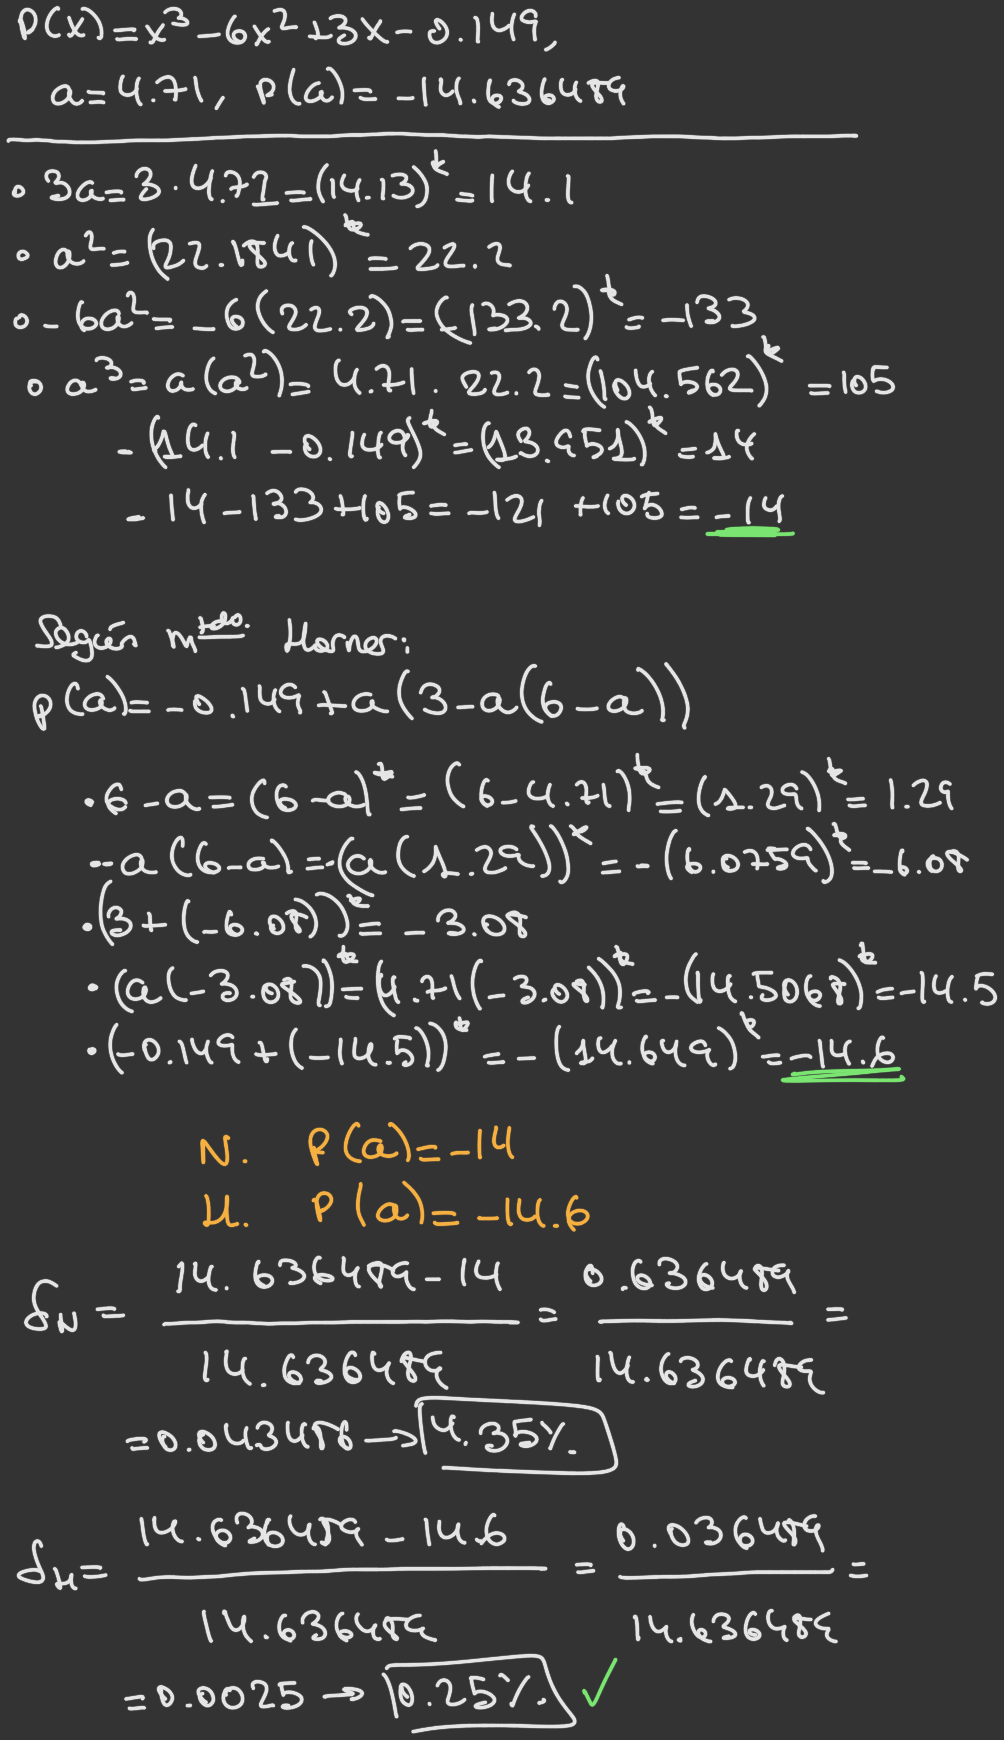 P(x)=x³-6x²+3x-0.149,
a=4.71, P(a)=-14.636489
• 3a=3·4.71=(14.13)*=14.1
• a²=(22.1841)*=22.2
• -6a²=-6(22.2)=(-133.2)*=-133
• a³=a(a²)=4.71·22.2=(104.562)*=105
-(14.1-0.149)*=(13.951)*=14
-14-133+105=-121+105=-14
Según mtdo. Horner:
p(a)=-0.149+a(3-a(6-a))
•6-a=(6-a)*=(6-4.71)*=(1.29)*=1.29
•-a(6-a)=-(a(1.29))*=-(6.0759)*=-6.08
•(3+(-6.08))*=-3.08
•(a(-3.08))*=(4.71(-3.08))*=-(14.5068)*=-14.5
•(-0.149+(-14.5))*=-(14.649)*=-14.6
N. P(a)=-14
H. P(a)=-14.6
δN = 14.636489-14 / 14.636489 = 0.636489 / 14.636489 =
=0.043486→4.35%.
δH= 14.636489-14.6 / 14.636489 = 0.036489 / 14.636489 =
=0.0025→0.25%. ✓